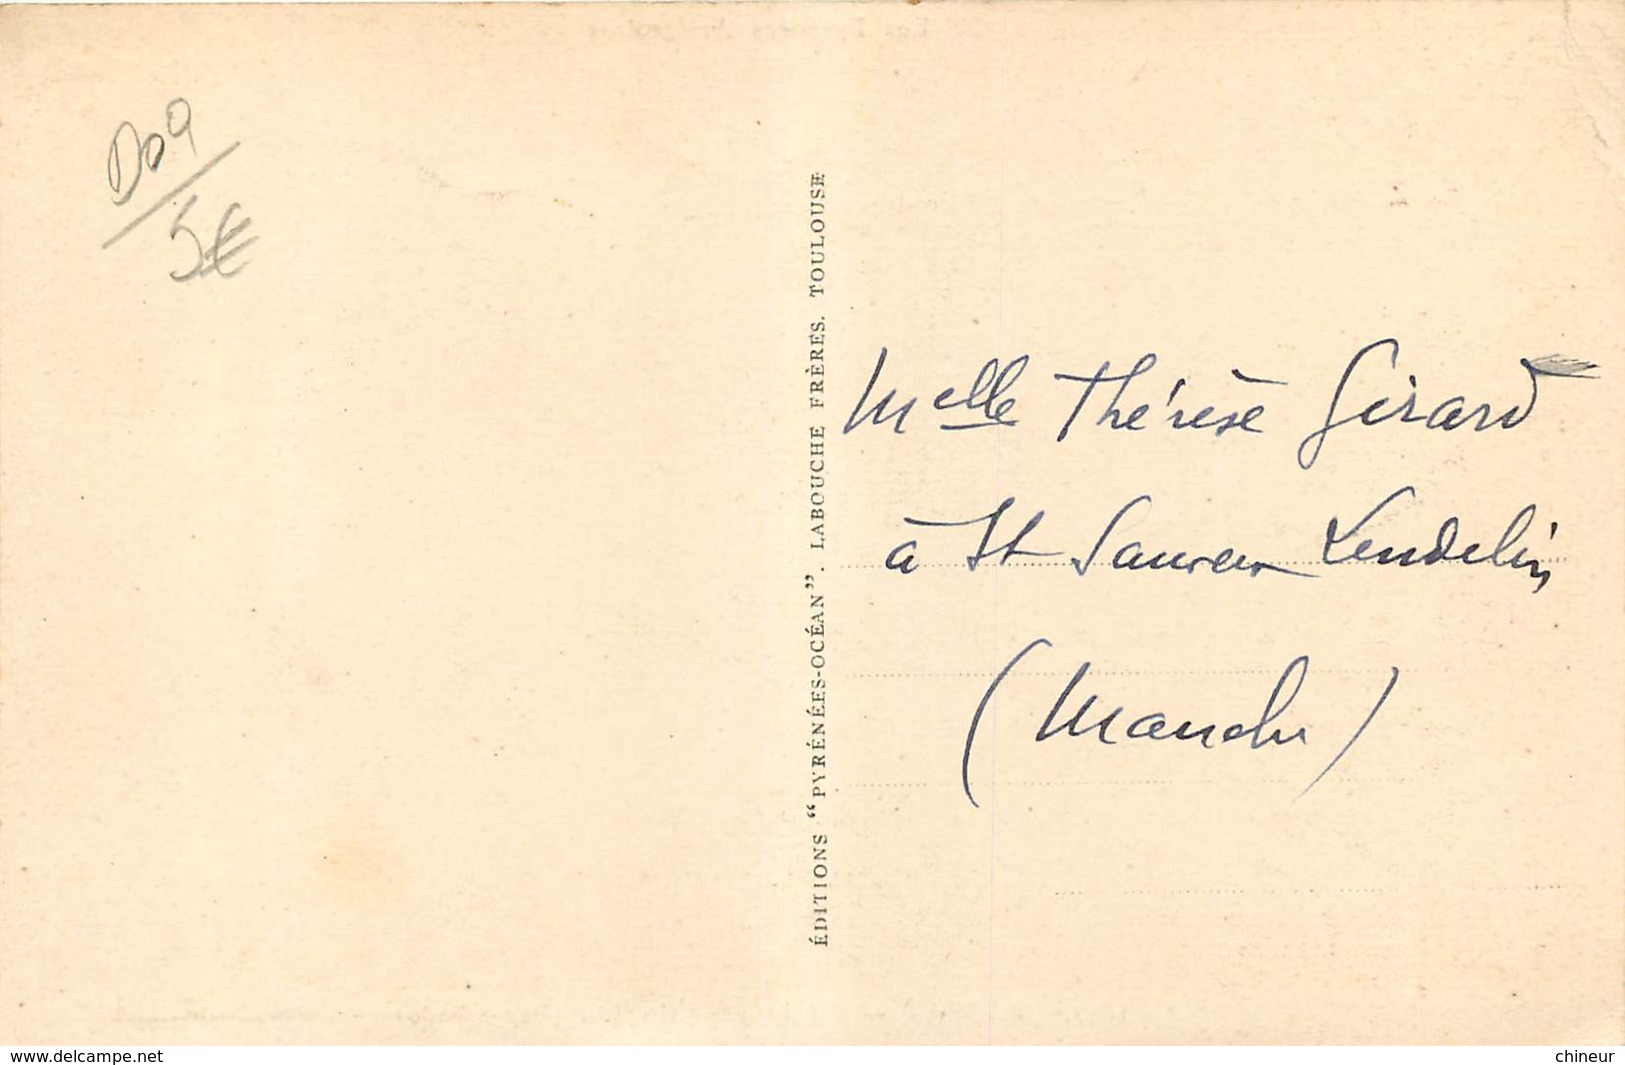 D09
5€
ÉDITIONS “PYRÉNÉES-OCÉAN”. LABOUCHE FRÈRES. TOULOUSE
Melle Thérèse Girard
à St Sauveur Lendelin
(Manche)
www.delcampe.net
chineur